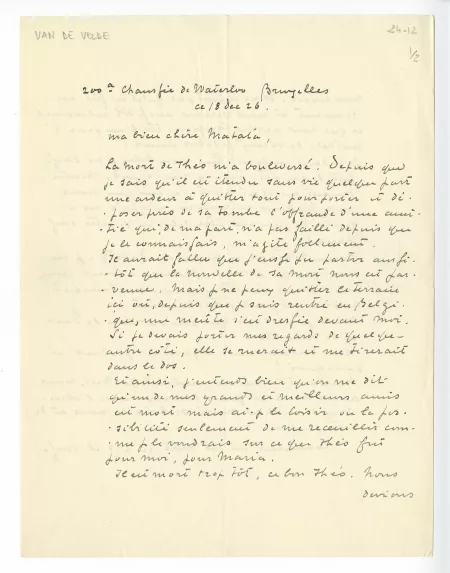 VAN DE VELDE
24-12
1/2
200a Chaussée de Waterloo Bruxelles
ce 18 dec 26.
ma bien chère Matala,
La mort de Théo m'a bouleversé. Depuis que
je sais qu'il est étendu sans vie quelque part
une ardeur à quitter tout pour porter et dé-
-poser près de sa tombe l'offrande d'une ami-
-tié qui, de ma part, n'a pas failli depuis que
je le connaissais, m'agite follement.
Il aurait fallu que j'eusse pu partir aussi-
-tôt que la nouvelle de sa mort nous est par-
-venue. Mais je ne peux quitter le terrain
ici où, depuis que je suis rentré en Belgi-
-que, une meute s'est dressée devant moi.
Si je devais porter mes regards de quelque
autre côté, elle se ruerait et me tirerait
dans le dos.
Et ainsi, j'entends bien qu'on me dit
qu'un de mes grands et meilleurs amis
est mort mais ai-je le loisir ou la pos-
-sibilité seulement de me recueillir com-
-me je le voudrais sur ce que Théo fut
pour moi, pour Maria.
Il est mort trop tôt, ce bon Théo. Nous
devions